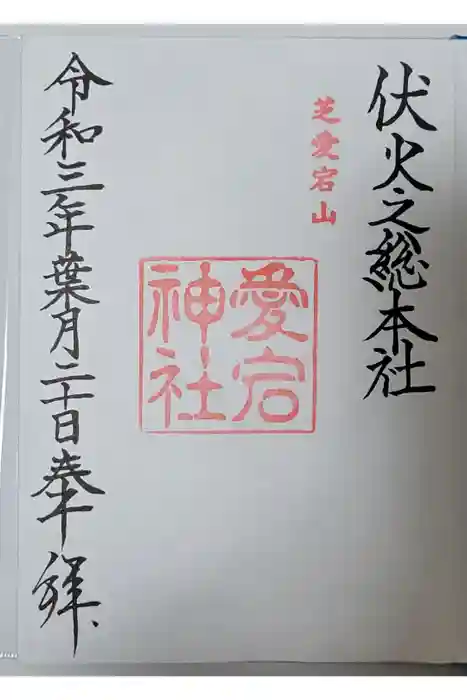 伏火之総本社
芝愛宕山
愛宕
神社
令和三年葉月二十日奉拝